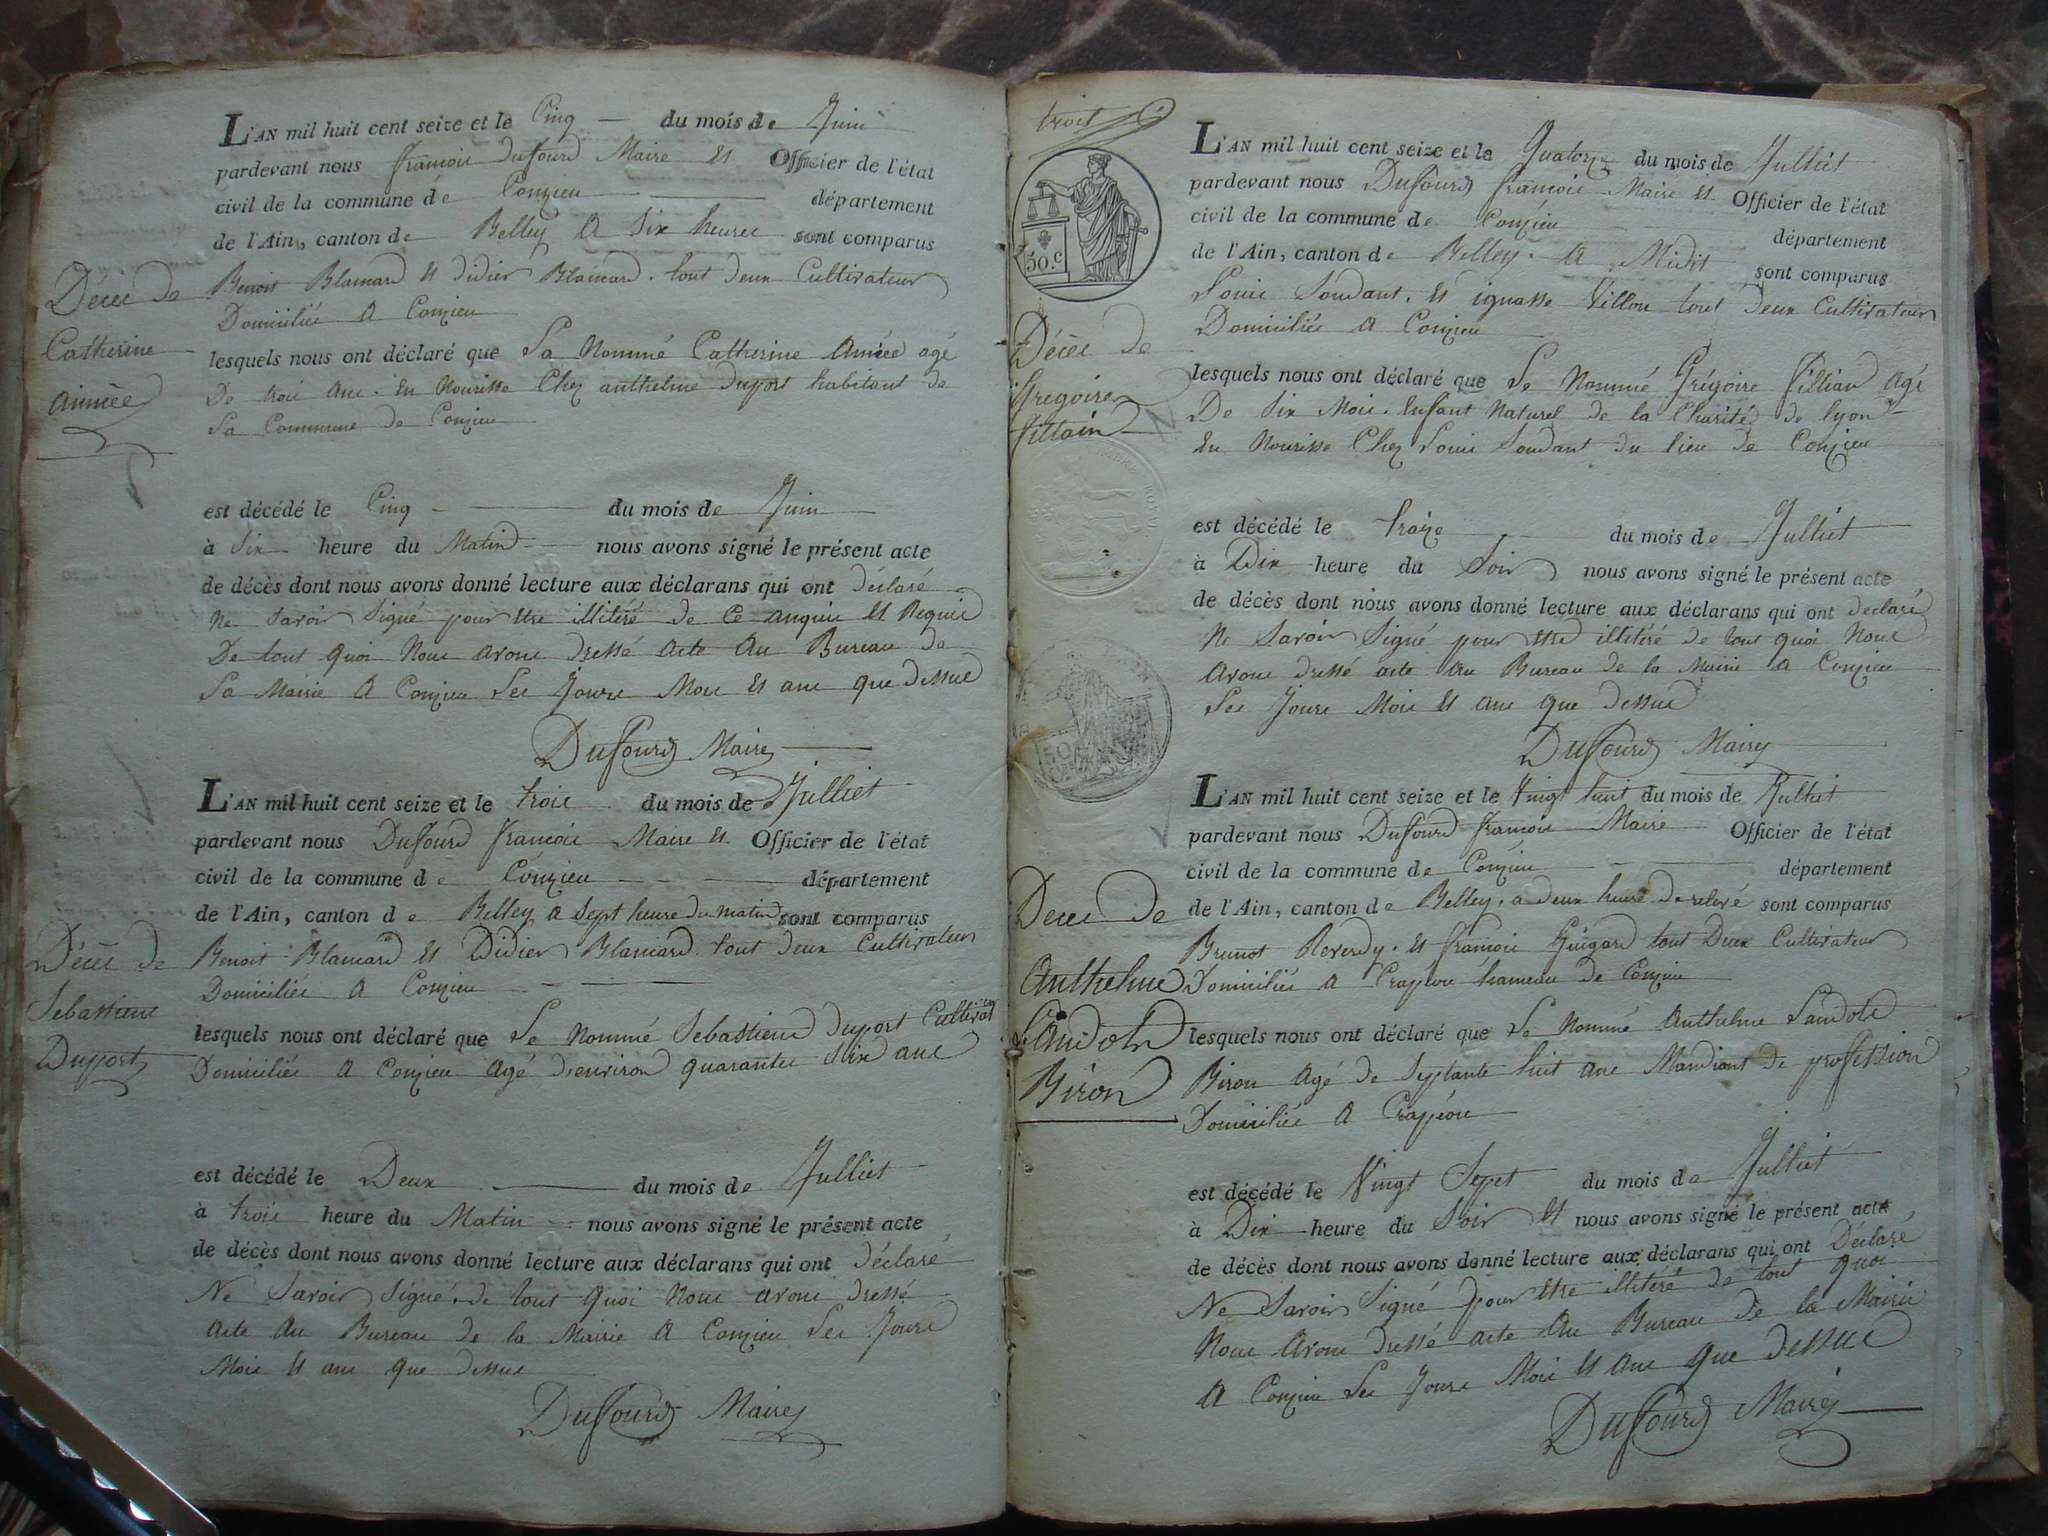 L'AN mil huit cent seize et le Cinq du mois de Juin
pardevant nous françois dufourd Maire Et Officier de l'état
civil de la commune de Conzieu département
de l'Ain, canton de Belley a six heures sont comparus
Benoit Blancard et didier Blancard tout deux Cultivateur
Domiciliés a Conzieu
lesquels nous ont déclaré que La Nommé Catherine Aimée agé
De trois ans En Nourisse Chez anthelme Duport habitant de
La Commune de Conzieu
est décédé le Cinq du mois de Juin
à Six heure du Matin nous avons signé le présent acte
de décès dont nous avons donné lecture aux déclarans qui ont déclaré
Ne savoir Signé pour Etre illitéré de Ce Enquis Et Requis
De tout quoi Nous avons dressé acte Au Bureau de
La Mairie A Conzieu Les Jours Mois Et ans que dessus
Dufourd Maire
Décès de
Catherine
Aimée
L'AN mil huit cent seize et le trois du mois de Julliet
pardevant nous Dufourd françois Maire Et Officier de l'état
civil de la commune de Conzieu département
de l'Ain, canton de Belley a Sept heure du matin sont comparus
Benoit Blancard Et Didier Blancard tout deux Cultivateur
Domiciliés A Conzieu
lesquels nous ont déclaré que Le Nommé Sebastiend Duport Cultivat
Domiciliés A Conzieu Agé d'environ quarante Six ans
est décédé le Deux du mois de Julliet
à trois heure du Matin nous avons signé le présent acte
de décès dont nous avons donné lecture aux déclarans qui ont déclaré
Ne Savoir Signé de tout quoi Nous avons dressé
acte Au Bureau de la Mairie A Conzieu Les Jours
Mois Et ans que dessus
Dufourd Maire
Décès de
Sebastiend
Duport
trois
50.c
L'AN mil huit cent seize et le Quatorze du mois de Julliet
pardevant nous Dufourd françois Maire Et Officier de l'état
civil de la commune de Conzieu département
de l'Ain, canton de Belley A Midit sont comparus
Louis Soudant Et ignasse Villou tout deux Cultivateur
Domiciliés A Conzieu
lesquels nous ont déclaré que Le Nommé Grégoire fillian Agé
De Six Mois Enfant Naturel de la Charité de lyon
En Nourisse Chez Louis Soudant du lieu de Conzieu
est décédé le traize du mois de Julliet
à Dix heure du Soir nous avons signé le présent acte
de décès dont nous avons donné lecture aux déclarans qui ont declaré
Ne Savoir Signé pour Etre illitéré de tout quoi Nous
Avons dressé acte Au Bureau de la Mairie A Conzieu
Les Jours Mois Et ans que dessus
Dufourd Maire
Décès de
Gregoire
fillain
L'AN mil huit cent seize et le Vingt huit du mois de Julliet
pardevant nous Dufourd françois Maire Officier de l'état
civil de la commune de Conzieu département
de l'Ain, canton de Belley a deux heure de relevé sont comparus
Brunot Reverdy Et françois Guigard tout Deux Cultivateur
Domiciliés A Crapéou hameau de Conzieu
lesquels nous ont déclaré que Le Nommé Anthelme Landola
Biron Agé de Septante huit ans Mandiant de profession
Domiciliés A Crapéou
est décédé le Vingt Sept du mois de Julliet
à Dix heure du Soir Et nous avons signé le présent acte
de décès dont nous avons donné lecture aux déclarans qui ont Déclaré
Ne Savoir Signé pour Etre illitéré de tout quoi
Nous Avons dressé acte Au Bureau de la Mairie
A Conzieu Les Jours Mois Et Ans que dessus
Dufourd Maire
Deces de
Anthelme
Biron